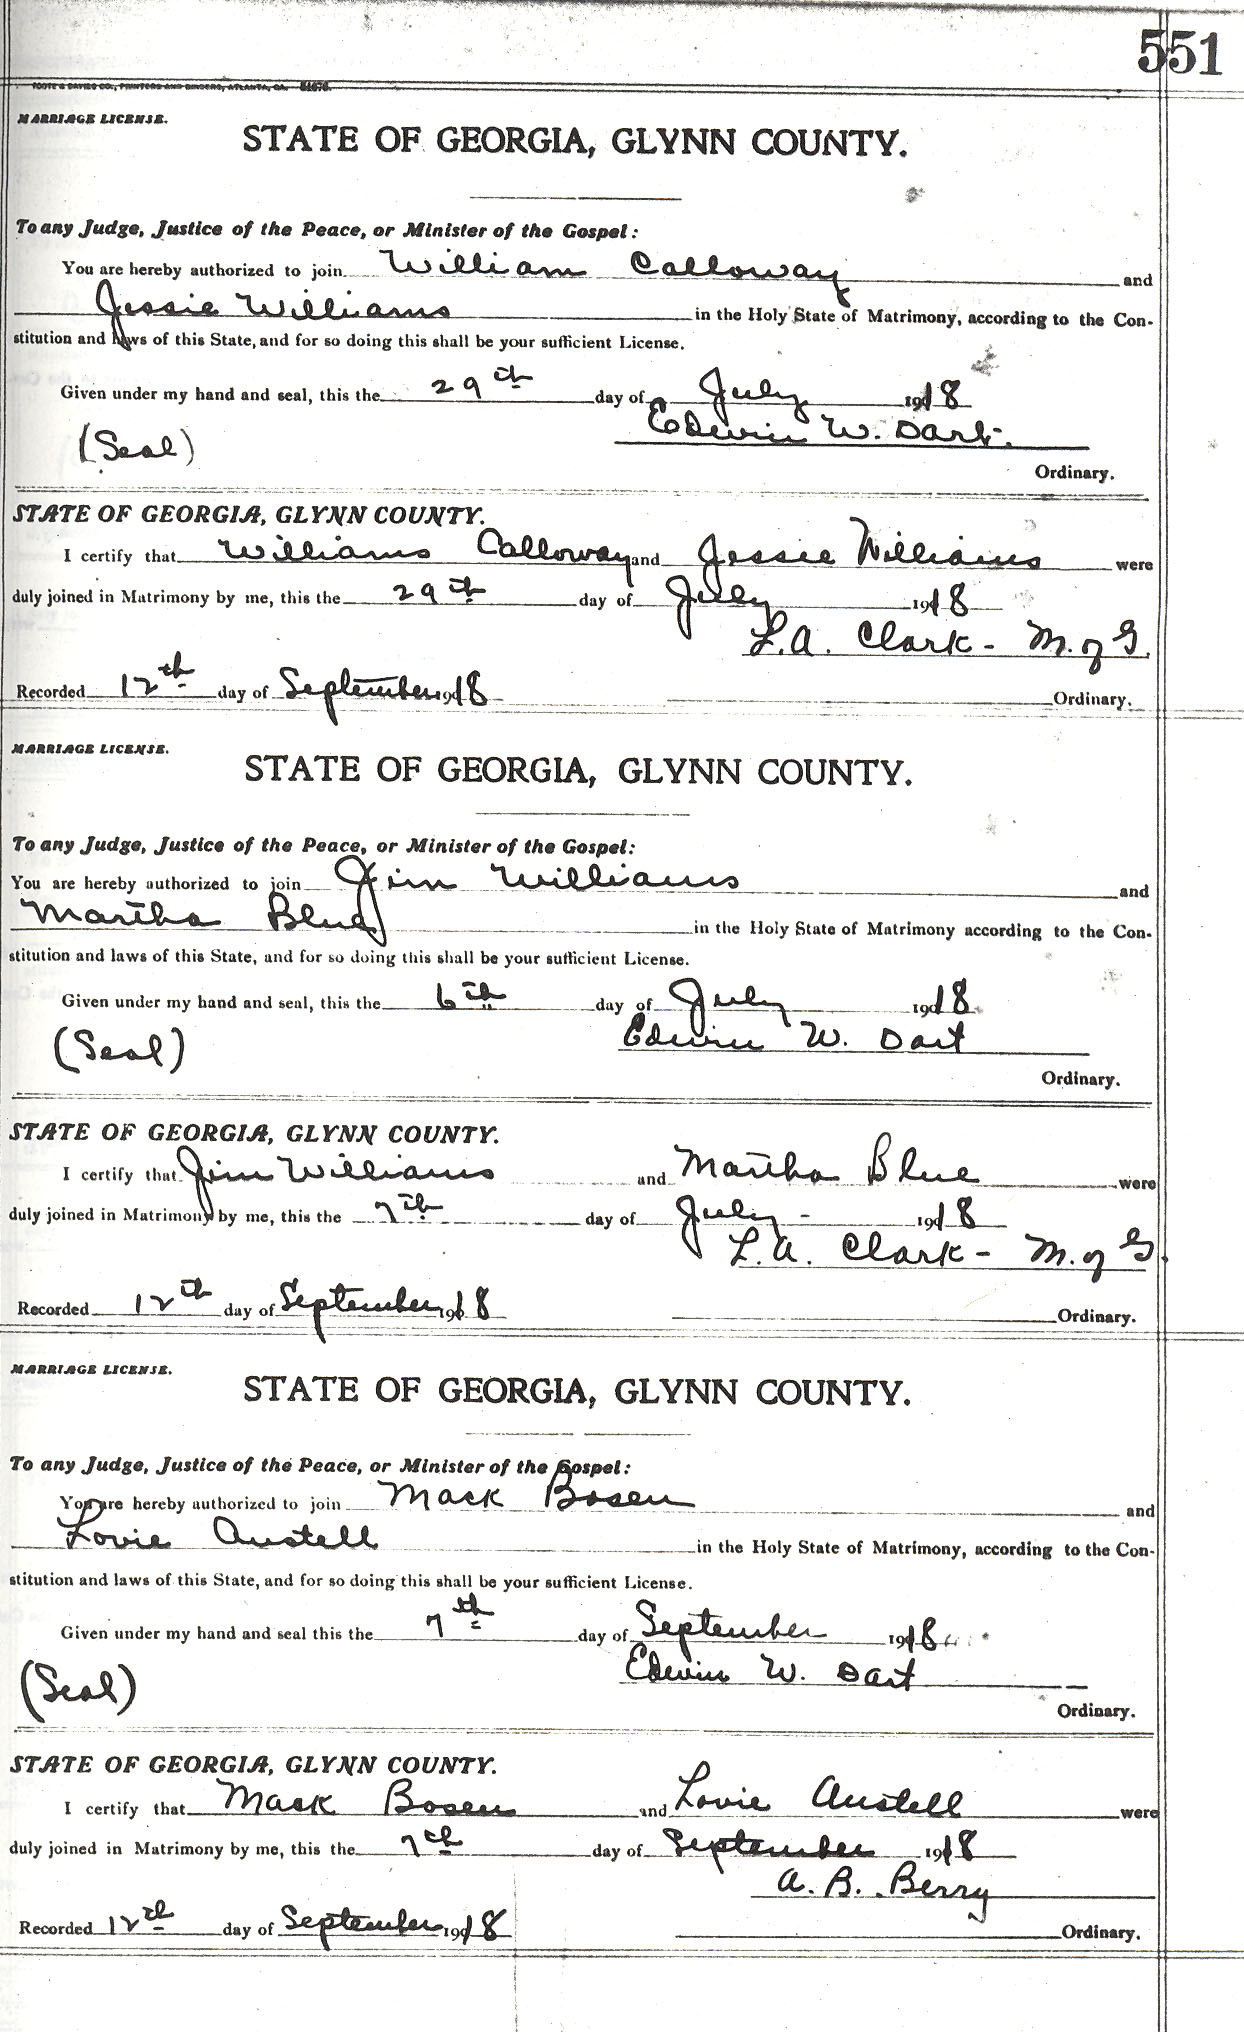 551
FOOTE & DAVIES CO., PRINTERS AND BINDERS, ATLANTA, GA.
MARRIAGE LICENSE.
STATE OF GEORGIA, GLYNN COUNTY.
To any Judge, Justice of the Peace, or Minister of the Gospel:
You are hereby authorized to join William Calloway and
Jessie Williams in the Holy State of Matrimony, according to the Con-
stitution and laws of this State, and for so doing this shall be your sufficient License.
Given under my hand and seal, this the 29th day of July 1918
(Seal) Edwin W. Dart.
Ordinary.
STATE OF GEORGIA, GLYNN COUNTY.
I certify that Williams Calloway and Jessie Williams were
duly joined in Matrimony by me, this the 29th day of July 1918
L.A. Clark - M. of G.
Recorded 12th day of September 1918 Ordinary.
MARRIAGE LICENSE.
STATE OF GEORGIA, GLYNN COUNTY.
To any Judge, Justice of the Peace, or Minister of the Gospel:
You are hereby authorized to join Jim Williams and
Martha Blue in the Holy State of Matrimony according to the Con-
stitution and laws of this State, and for so doing this shall be your sufficient License.
Given under my hand and seal, this the 6th day of July 1918
(Seal) Edwin W. Dart
Ordinary.
STATE OF GEORGIA, GLYNN COUNTY.
I certify that Jim Williams and Martha Blue were
duly joined in Matrimony by me, this the 7th day of July - 1918
L.A. Clark - M. of G.
Recorded 12th day of September 1918 Ordinary.
MARRIAGE LICENSE.
STATE OF GEORGIA, GLYNN COUNTY.
To any Judge, Justice of the Peace, or Minister of the Gospel:
You are hereby authorized to join Mack Bosen and
Lovie Austell in the Holy State of Matrimony, according to the Con-
stitution and laws of this State, and for so doing this shall be your sufficient License.
Given under my hand and seal this the 7th day of September 1918
(Seal) Edwin W. Dart
Ordinary.
STATE OF GEORGIA, GLYNN COUNTY.
I certify that Mack Bosen and Lovie Austell were
duly joined in Matrimony by me, this the 7th day of September 1918
A. B. Berry
Recorded 12th day of September 1918 Ordinary.